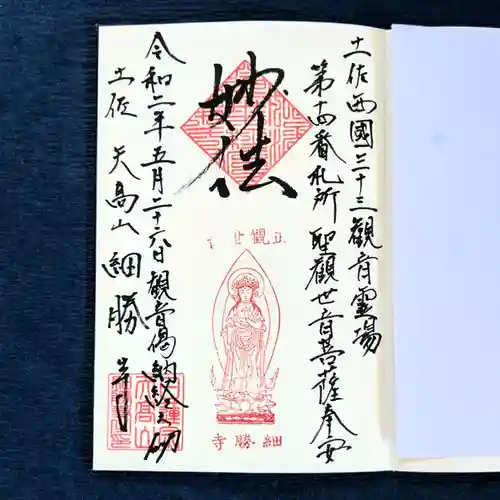 土佐西國三十三觀音霊場
第十四番札所 聖觀世音菩薩奉安
妙法
正觀世音
細勝寺
令和二年五月二十六日觀音偈納経之砌
土佐 天高山 細勝寺